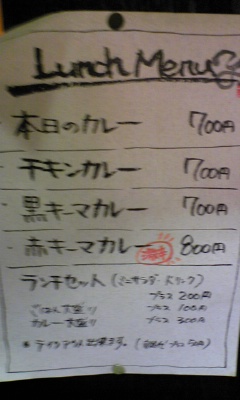 Lunch Menu
本日のカレー 700円
チキンカレー 700円
黒キーマカレー 700円
赤キーマカレー 800円
ランチセット(ミニサラダ・ドリンク)
プラス 200円
ごはん大盛り プラス 100円
カレー大盛り プラス 300円
※ テイクアウト出来ます。